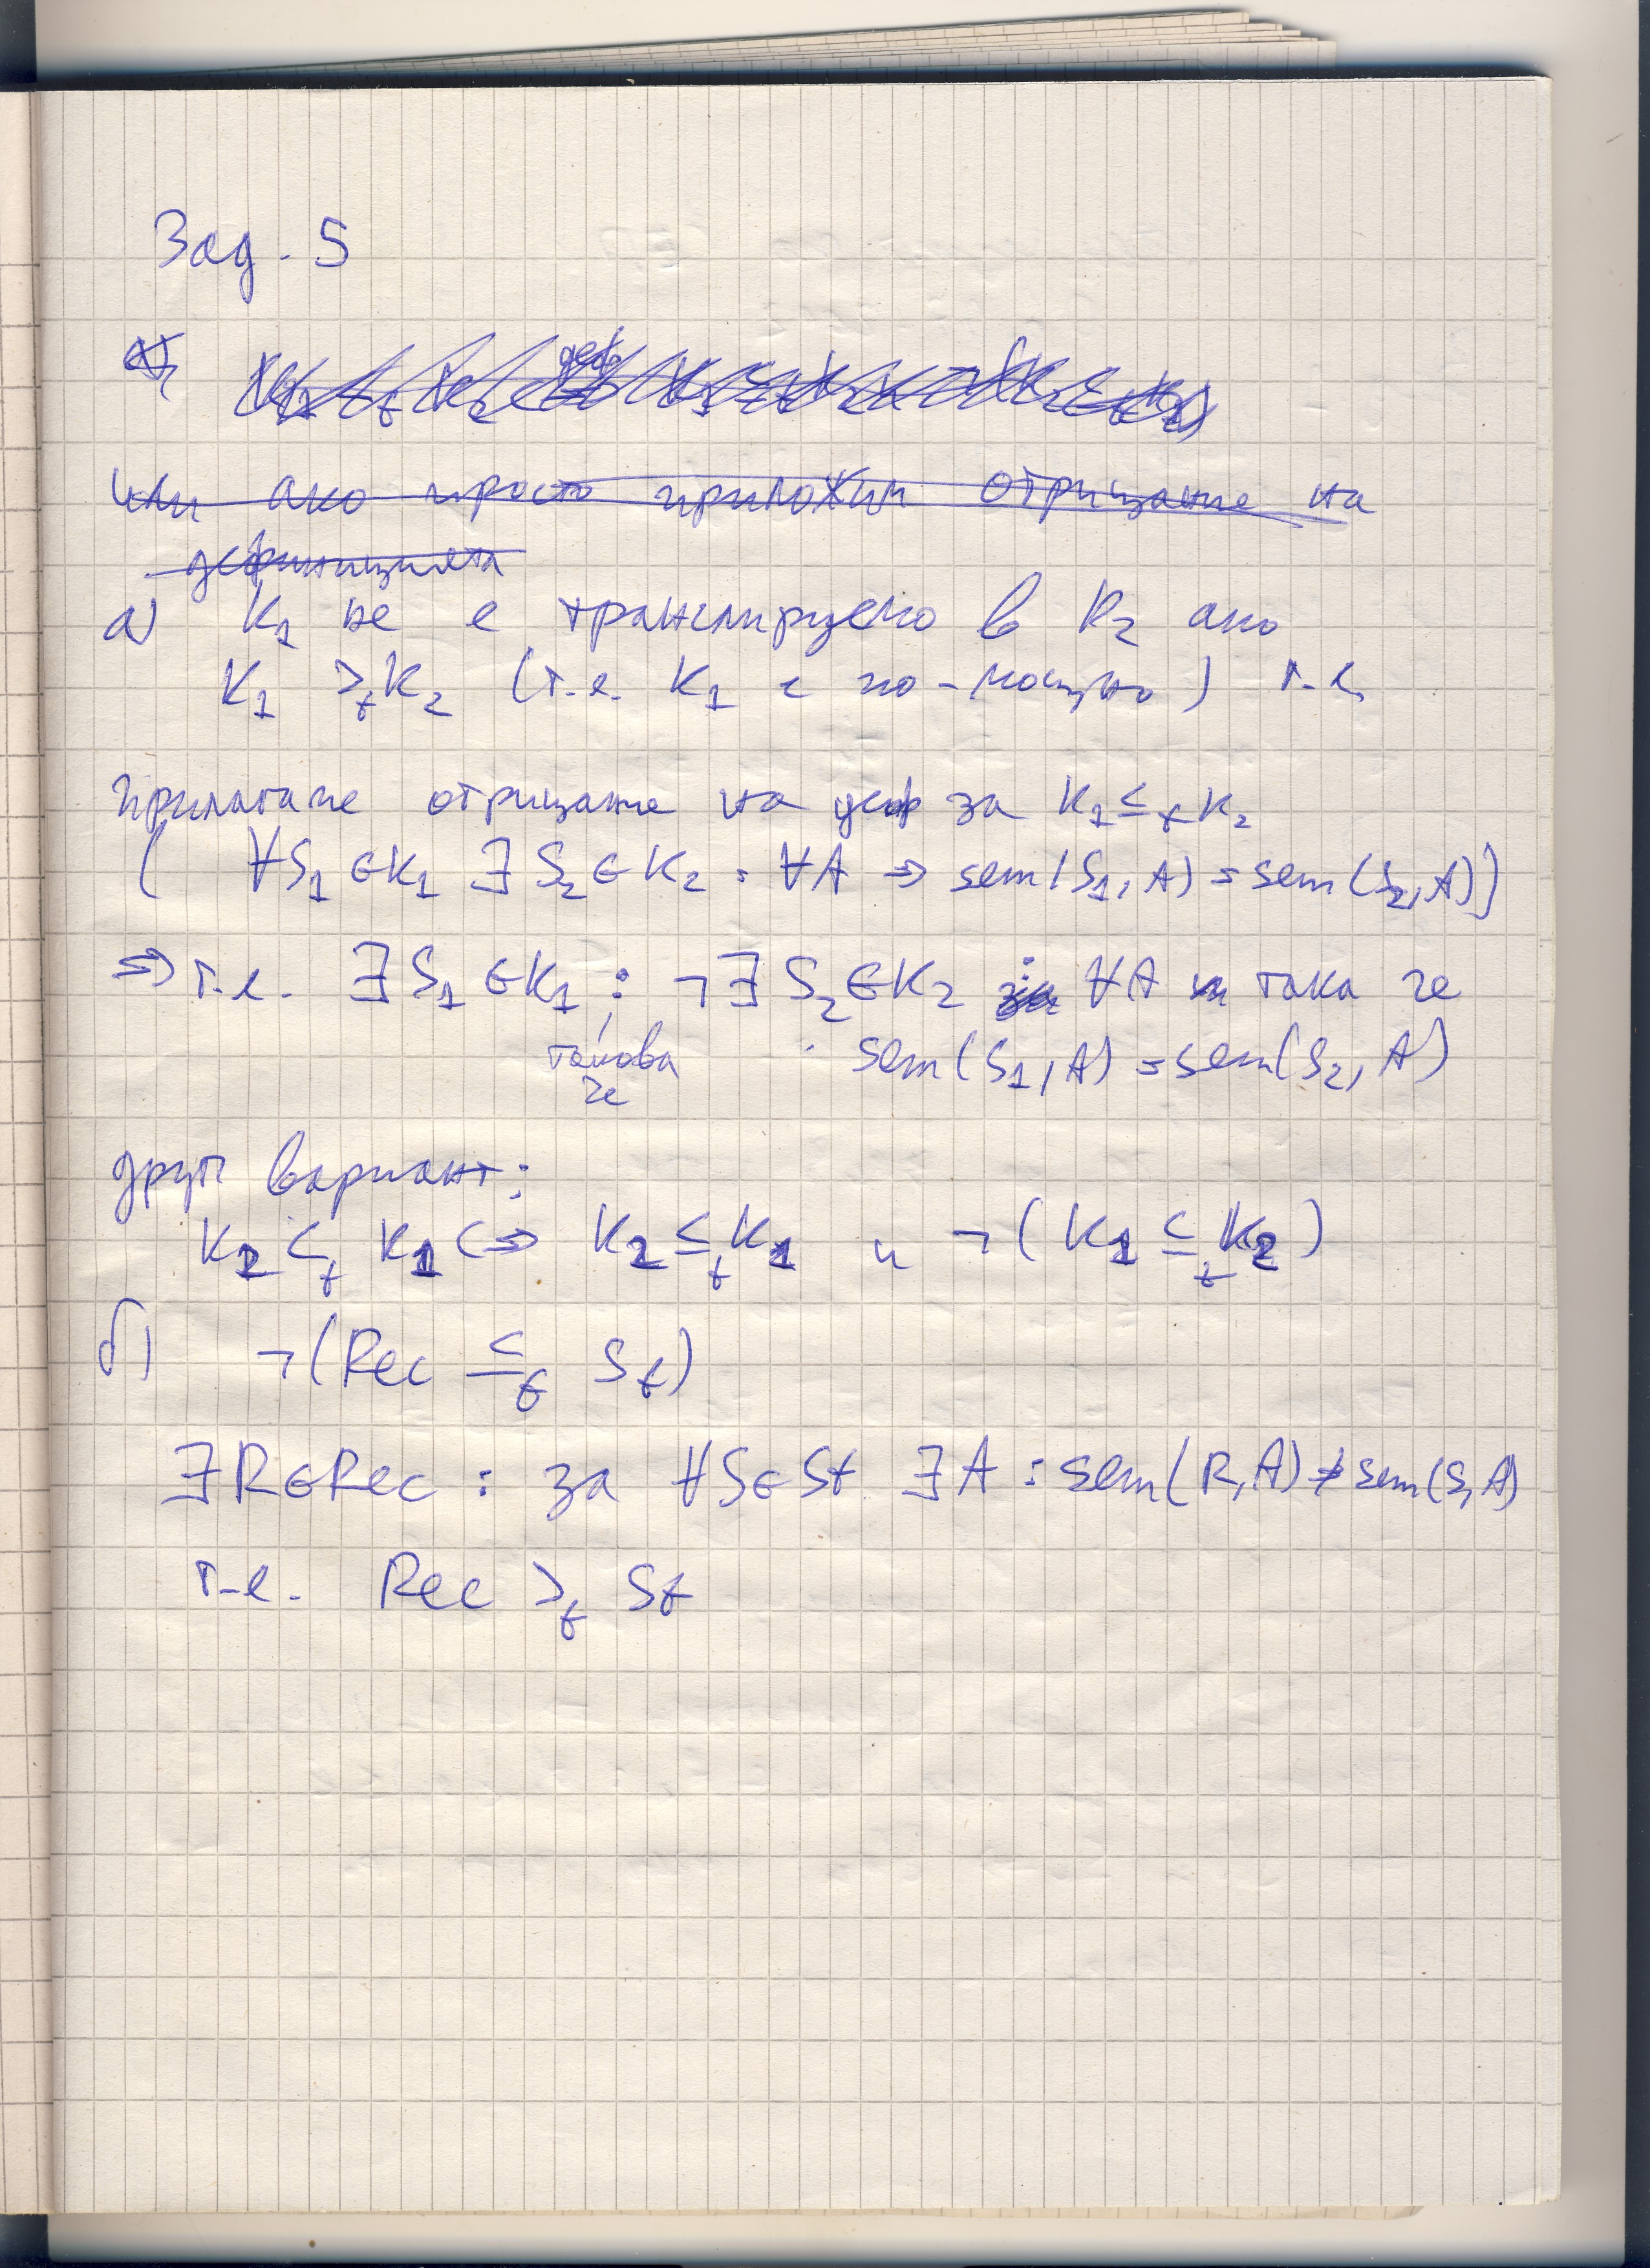 Зад. 5
или ако просто приложим отрицание на
дефиницията
а) K₁ не е транслируемо в K₂ ако
K₁ >ₜ K₂ (т.е. K₁ е по-мощно) т.е.
Прилагаме отрицание на деф за K₁ ≤ₜ K₂
( ∀S₁ ∈ K₁ ∃ S₂ ∈ K₂ : ∀A ⇒ sem(S₁, A) = sem(S₂, A))
⇒ т.е. ∃ S₁ ∈ K₁ : ¬∃ S₂ ∈ K₂ : ∀A така че
такова че
sem(S₁, A) = sem(S₂, A)
друг вариант:
K₂ <ₜ K₁ <=> K₂ ≤ₜ K₁ и ¬(K₁ ≤ₜ K₂)
б) ¬(Rec ≤ₜ St)
∃R ∈ Rec : за ∀S ∈ St ∃A : sem(R, A) ≠ sem(S, A)
т.е. Rec >ₜ St